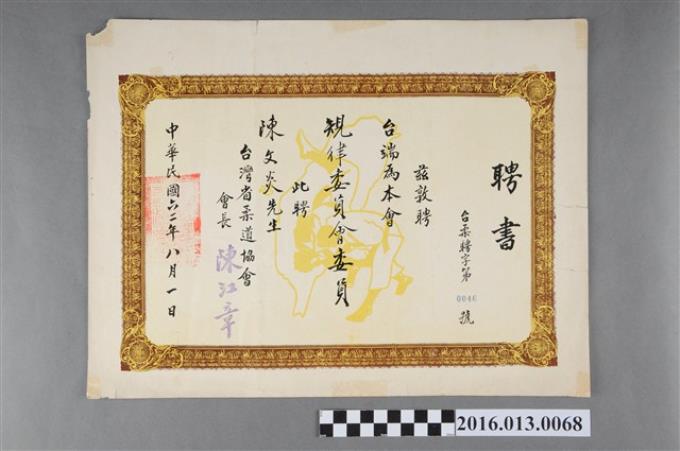 聘書
台柔聘字第0046號
茲敦聘
台端為本會
規律委員會委員
此聘
陳文炎先生
台灣省柔道協會
會長 陳江章
中華民國六二年八月一日
2016.013.0068